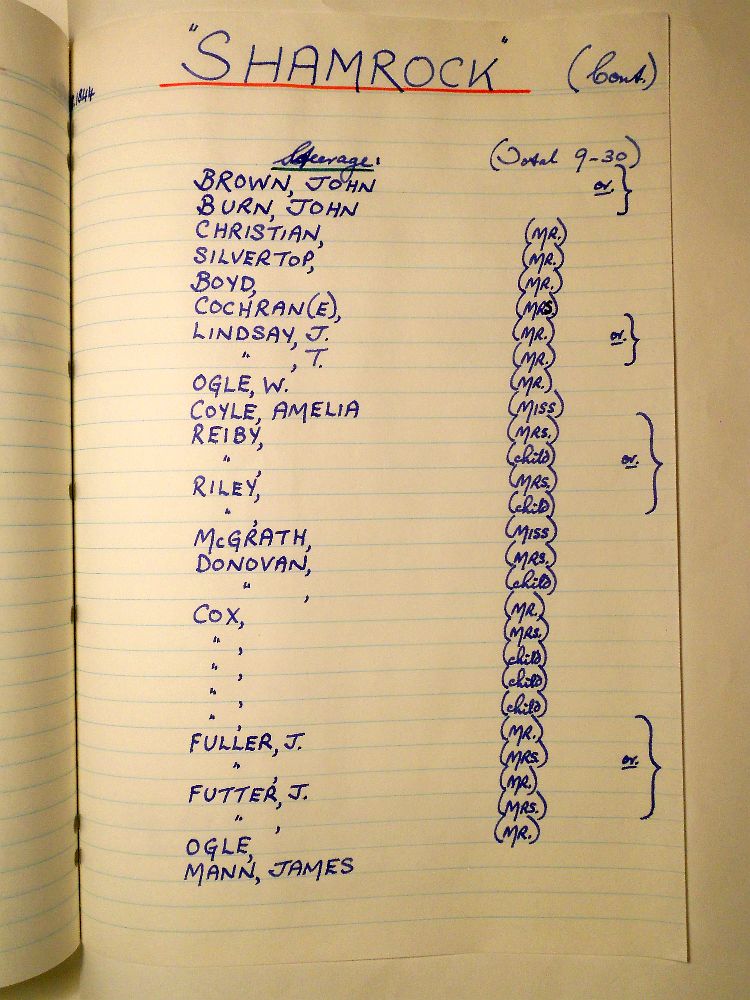 "SHAMROCK" (Cont.)
Steerage: (Total 9-30)
BROWN, JOHN or. }
BURN, JOHN
CHRISTIAN, (MR.)
SILVERTOP, (MR.)
BOYD, (MR.)
COCHRAN(E), (MRS.)
LINDSAY, J. (MR.) or. }
" , T. (MR.)
OGLE, W. (MR.)
COYLE, AMELIA (MISS)
REIBY, (MRS.) or. }
" , (child)
RILEY, (MRS.)
" , (child)
McGRATH, (MISS)
DONOVAN, (MRS.)
" , (child)
COX, (MR.)
" , (MRS.)
" , (child)
" , (child)
" , (child)
FULLER, J. (MR.) or. }
" , (MRS.)
FUTTER, J. (MR.)
" , (MRS.)
OGLE, (MR.)
MANN, JAMES